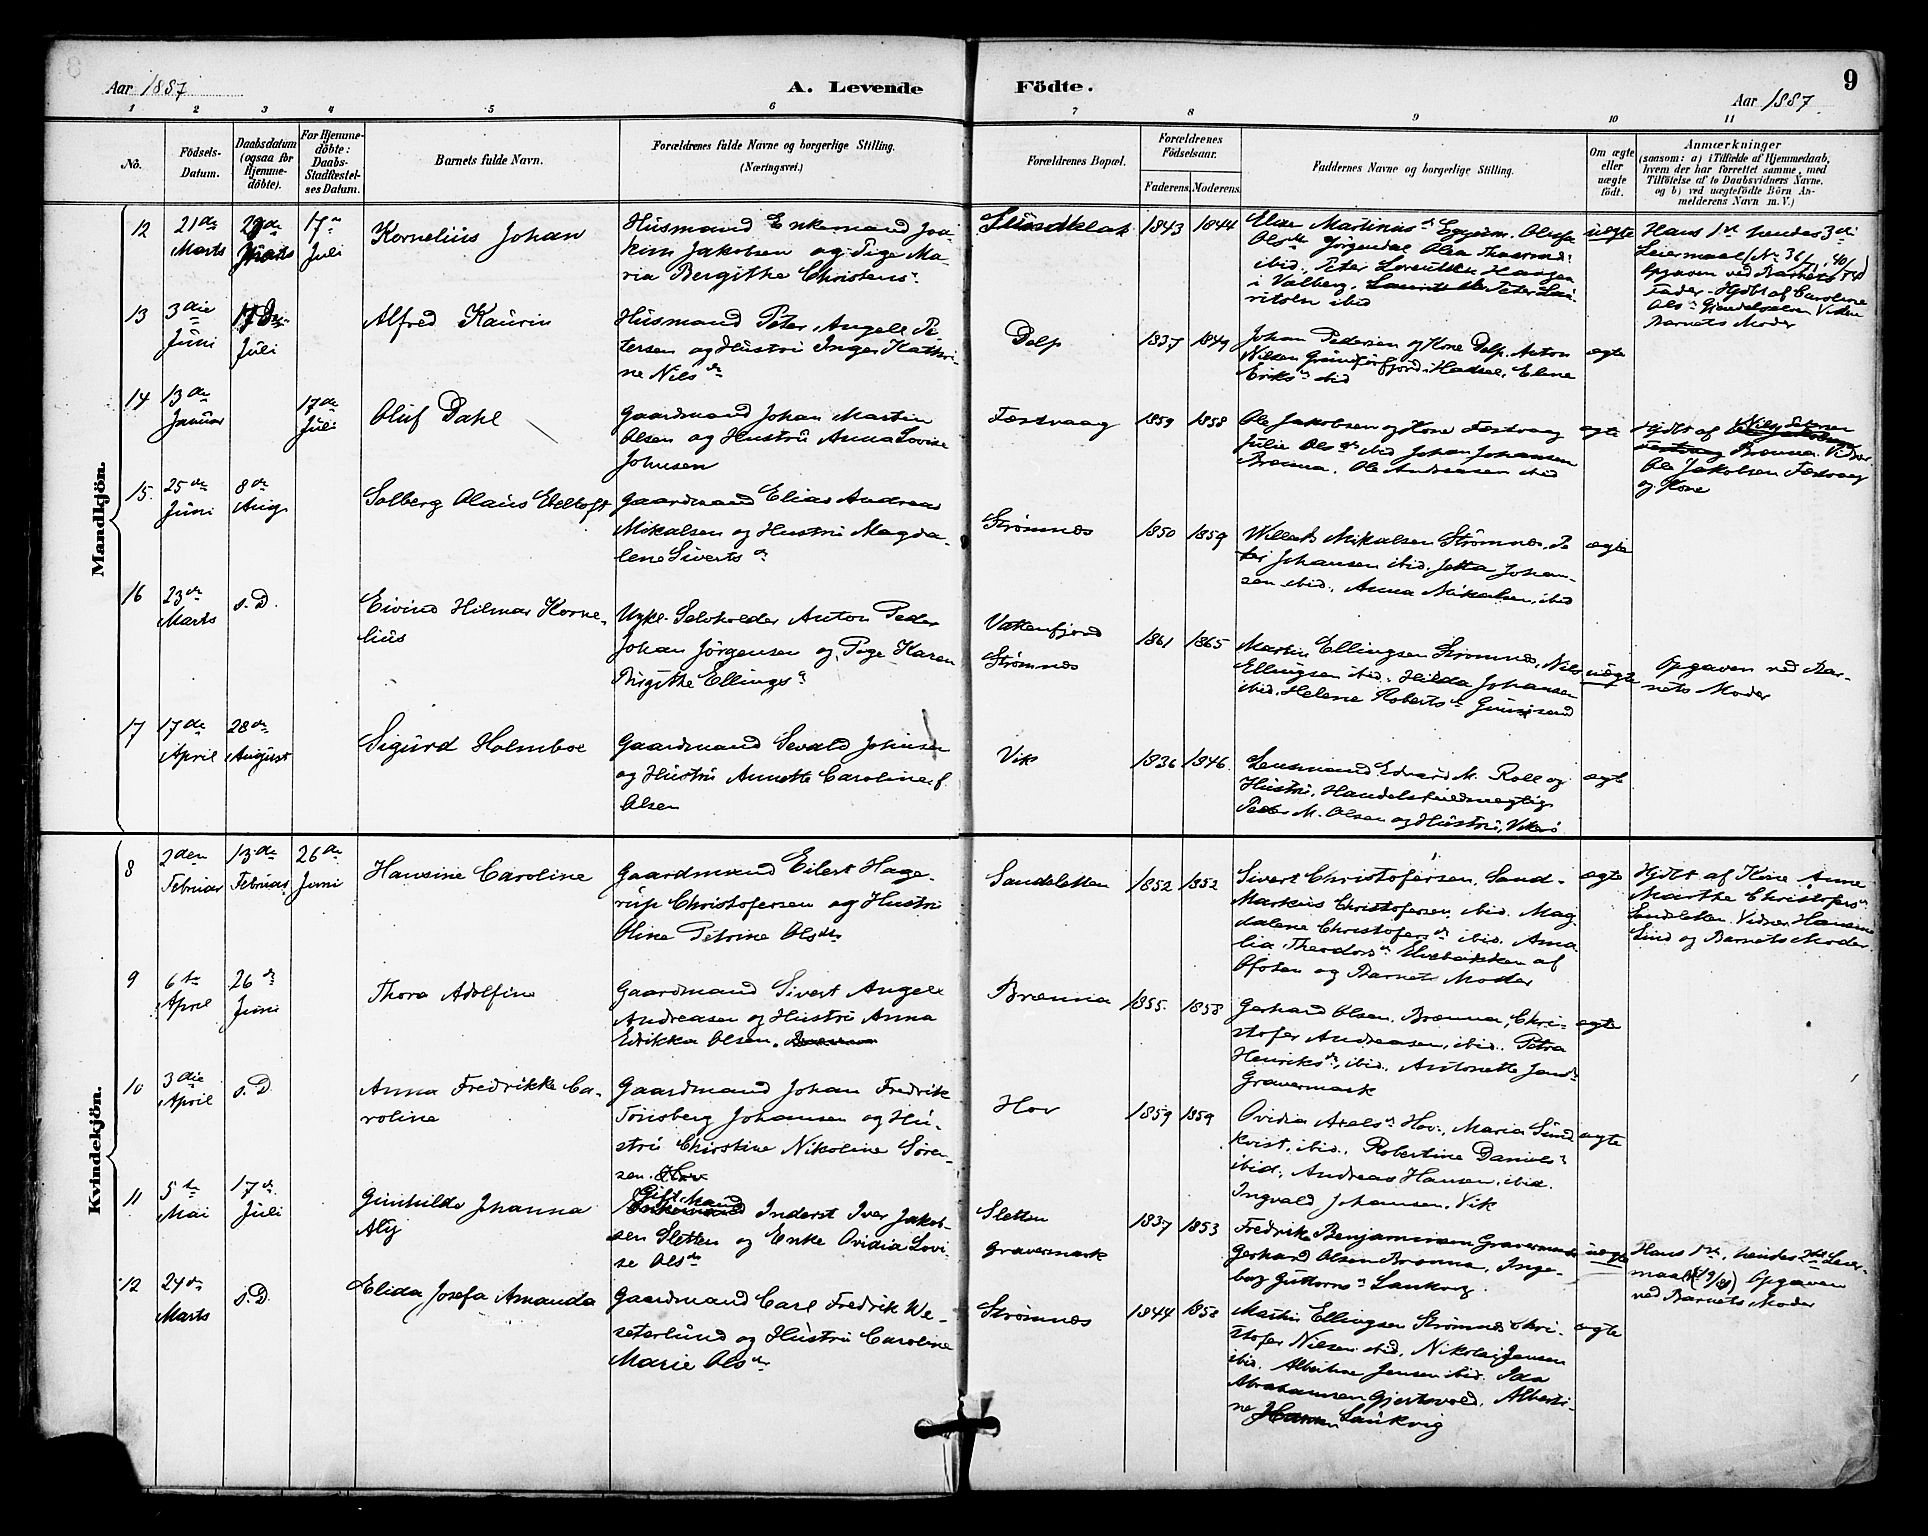 9
Aar 1887
A. Levende
Födte.
Aar 1887
1 2 3 4 5 6 7 8 9 10 11
No.
Födsels-
Datum.
Daabsdatum
(ogsaa for
Hjemme-
döbte).
For Hjemme-
döbte:
Daabs-
Stadfæstel-
ses Datum.
Barnets fulde Navn.
Forældrenes fulde Navne og borgerlige Stilling.
(Næringsvei.)
Forældrenes Bopæl.
Forældrenes
Födselsaar.
Faderens. Moderens.
Faddernes Navne og borgerlige Stilling.
Om ægte
eller
uægte
födt.
Anmærkninger
(saasom: a) i Tilfælde af Hjemmedaab,
hvem der har forrettet samme, med
Tilföielse af to Daabsvidners Navne,
og b) ved uægtefödte Börn An-
melderens Navn m. V.)
Mandkjön.
12
21de
Marts
17
Juli
Kornelius Johan
Husmand Enkemand Joa-
kim Jakobsen og Pige Ma-
ria Bergithe Christens
1843 1844
uægte
Hans 1ste hendes 3die
Leiermaal
Opgaven ved Barnets
Fader. Hjdbt af Caroline
Barnets Moder
13
3die
Juni
Juli
Alfred Kaurin
Husmand Peter Angell Pe-
tersen og Hustru Inger Kathri-
ne Nilsdr
Delp
1837 1849
Johan Pedersen og Kone Delp. Anton
Nilsen Grundførfjord i Hadsel, Elene
Eriks ibid
ægte
14
13de
Januar
17de
Juli
Oluf Dahl
Gaardmand Johan Martin
Olsen og Hustru Anna Lovise
Johnsen
Festvaag
1859 1858
Ole Jakobsen og Kone Festvaag
Julie Olsdr ibid Johan Johansen
Brenna. Ole Andreasen ibid
ægte
Hjdbt af
Brenna. Vidner
Ole Jakobsen Festvaag
og Kone
15
25de
Juni
8de
Aug.
Solberg Olaus Ebeltoft
Gaardmand Elias Andreas
Mikalsen og Hustru Magda-
lene Sivertsdr
Strømnes
1850 1859
Willads Mikalsen Strømnes, Pe-
ter Johansen ibid. Jetta Johan-
sen ibid., Anna Mikalsen, ibid
ægte
16
23de
Marts
s.D.
Eivind Hilmar Korne-
lius
Ugkl. Selvholder Anton Peder
Johan Jörgensen og Pige Karen
Birgithe Ellingsdr
Vatenfjord
Strømnes
1861 1865
Martin Ellingsen Strømnes, Nils
Ellingsen ibid. Hilda Johansen
ibid. Helene Roberts
uægte
Opgaven ved Bar-
nets Moder
17
17de
April
28de
August
Sigurd Holmboe
Gaardmand Sevald Johnsen
og Hustru Annette Caroline f.
Olsen
Vik
1836 1846
Lensmand Edvard M. Roll og
Hustru, Handelsfuldmægtig
Peder M. Olsen og Hustru,
ægte
Kvindekjön.
8
2den
Februar
13de
Februar
26de
Juni
Hansine Caroline
Gaardmand Eilert Hage-
rup Christofersen og Hustru
Oline Petrine Olsdtr
Sandsletten
1852 1852
Sivert Christofersen, Sand-
Markus Christofersen ibid. Mag
dalene Christofersdr ibid. Ama
lia Theodorsdr Elvebakken af
Ofoten og Barnets Moder
ægte
Hjdbt af Kone Anne
Marthe Christofersdr
Sandsletten. Vidner Hansine
Lind og Barnets Moder
9
6te
April
26de
Juni
Thora Adolfine
Gaardmand Sivert Angell
Andreasen og Hustru Anna
Edrikka Olsen.
Brenna
1855 1858
Gerhard Olsen. Brenna, Chri-
stofer Andreasen, ibid. Petra
Henriksdr, ibid. Antonette Jensdr
Gravermark
ægte
10
3die
April
s.D.
Anna Fredrikke Ca-
roline
Gaardmand Johan Fredrik
Tönsberg Johansen og Hu-
stru Christine Nikoline Sören-
sen.
Hov
1859 1859
Ovidia Axelsdr Hov, Maria Sund
kvist, ibid., Robertine Daniels
ibid., Andreas Hansen, ibid.
Ingvald Johansen, Vik
ægte
11
5te
Mai
17de
Juli
Gunhilde Johanna
Aly
Gift Mand
Inderst Iver Jakob-
sen Sletten og Enke Ovidia Lovi-
se Olsdr
Sletten
Gravermark
1837 1853
Fredrik Benjaminsen Gravermark
Gerhard Olsen Brenna, Inge-
borg Guttorms Laukvig.
uægte
Hans 1ste, hendes 2det Leier-
maal Opgaven
ved Barnets Moder
12
24de
Marts
s.D.
Elida Josefa Amanda
Gaardmand Carl Fredrik We-
seterlund og Hustru Caroline
Marie Olsdr
Strømnes
1844 1858
Martin Ellingsen Strømnes Chri-
stofer Nielsen ibid, Nikolai Jensen
ibid. Albertine Jensen ibid. Ida
Abrahamsen Gjertsvold. Alberti-
ne Laukvig
ægte